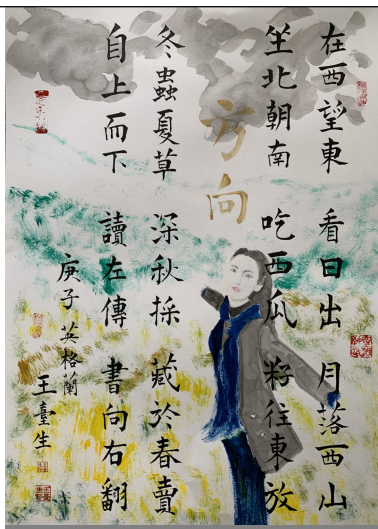 在西望東 看日出 月落西山
坐北朝南 吃西瓜 籽往東放
方向
冬蟲夏草 深秋採 藏於春賣
自上而下 讀左傳 書向右翻
庚子 英格蘭
王臺生